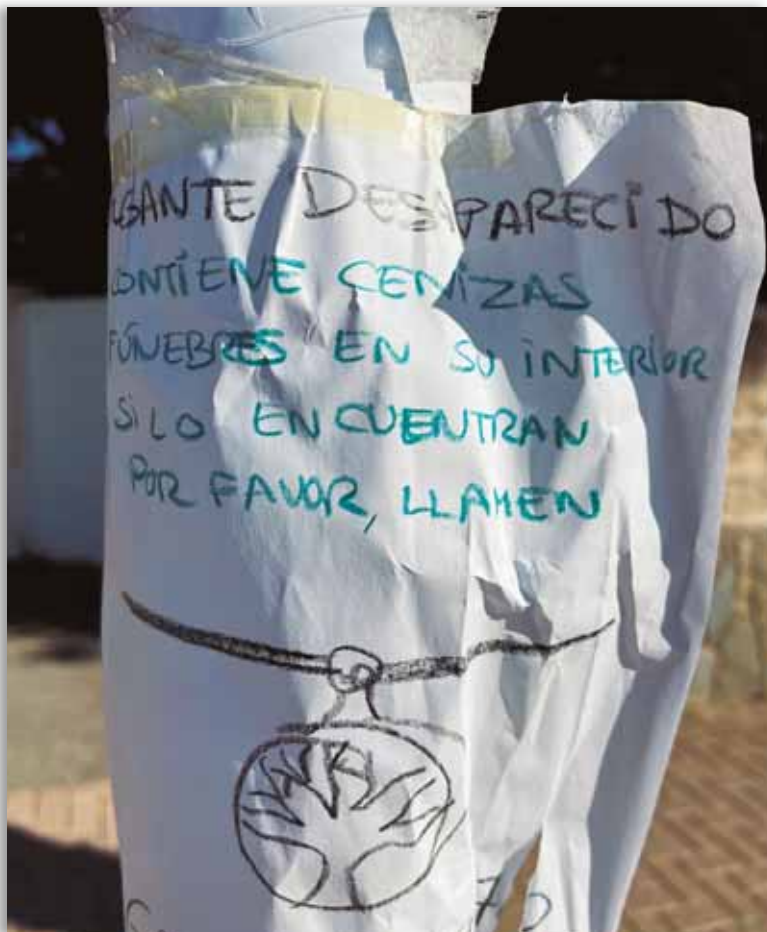 DESAPARECIDO
CONTIENE CENIZAS
FÚNEBRES EN SU INTERIOR
SI LO ENCUENTRAN
POR FAVOR, LLAMEN
70